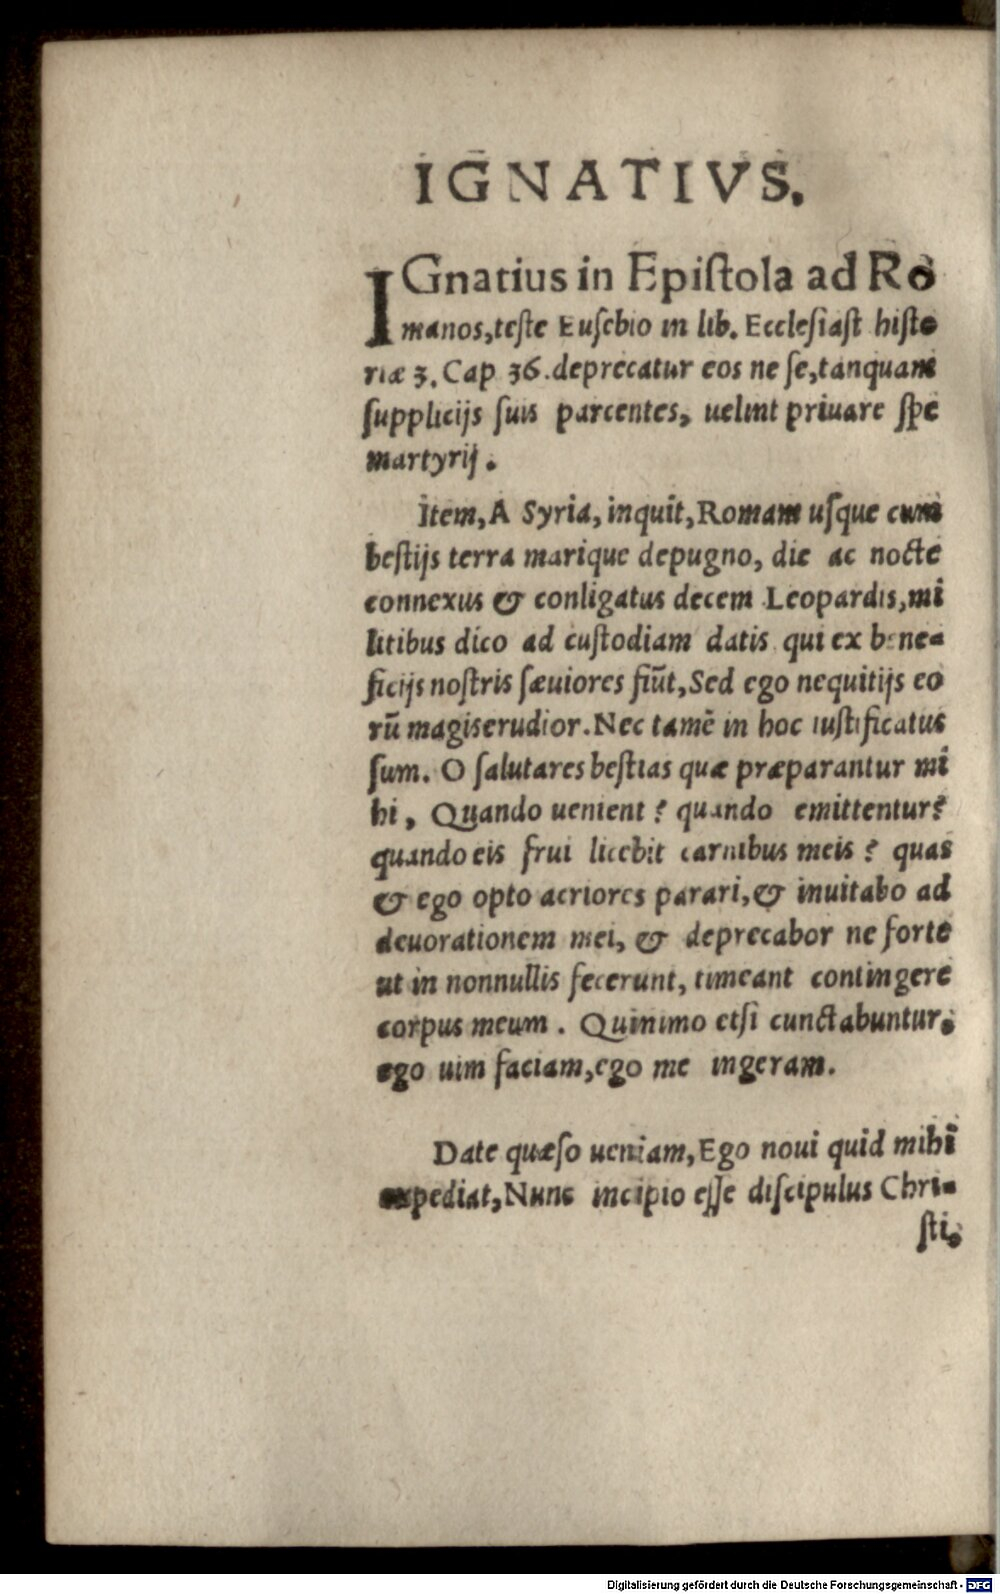 IGNATIVS.
IGnatius in Epiſtola ad Ro
manos,teſte Euſebio in lib. Eccleſiaſt hiſto
riæ 3. Cap 36.deprecatur eos ne ſe,tanquam
ſupplicijs ſuis parcentes, uelint priuare ſpe
martyrij.
Item, A Syria, inquit, Romam uſque cum
beſtijs terra marique depugno, die ac nocte
connexus & conligatus decem Leopardis,mi
litibus dico ad cuſtodiam datis qui ex bene-
ficijs noſtris ſæuiores fiūt,Sed ego nequitijs eo
rū magis erudior. Nec tamē in hoc iuſtificatus
ſum. O ſalutares beſtias quæ præparantur mi
hi, Quando uenient? quando emittentur?
quando eis frui licebit carnibus meis? quas
& ego opto acriores parari,& inuitabo ad
deuorationem mei, & deprecabor ne forte
ut in nonnullis fecerunt, timeant contingere
corpus meum. Quinimo etſi cunctabuntur,
ego uim faciam,ego me ingeram.
Date quæſo ueniam, Ego noui quid mihi
expediat, Nunc incipio eſſe diſcipulus Chri-
ſti,
Digitalisierung gefördert durch die Deutsche Forschungsgemeinschaft - DFG